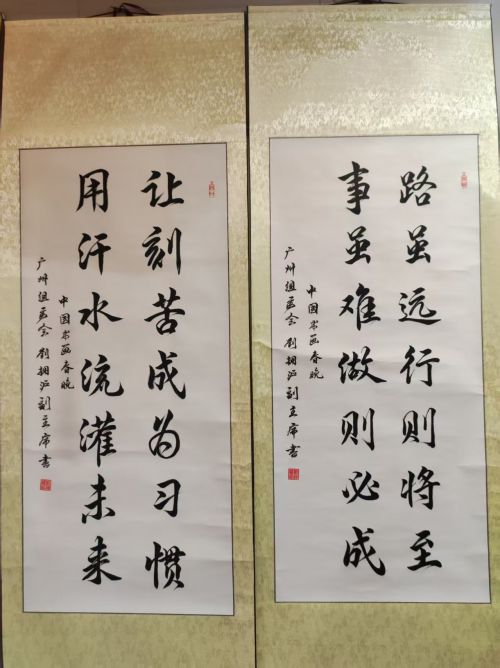 路虽远行则将至
事虽难做则必成
中国书画春晚
广州组委会刘拥沪副主席书
让刻苦成为习惯
用汗水流灌未来
中国书画春晚
广州组委会刘拥沪副主席书